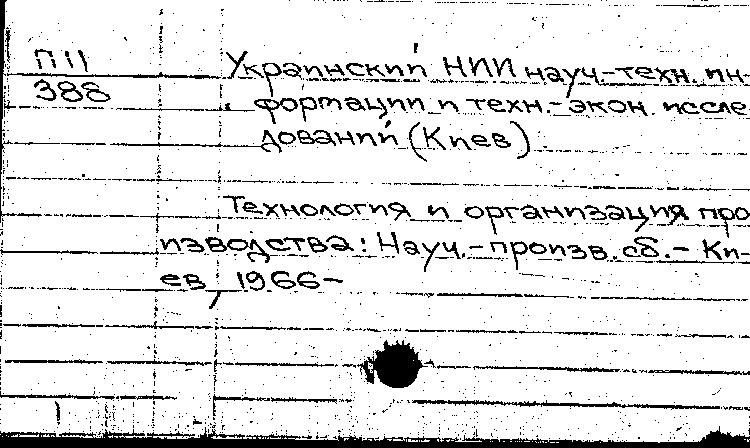 П 11
388
Украинский НИИ науч.-техн. ин-
формации и техн.-экон. иссле
дований (Киев)
Технология и организация про
изводства: Науч.-произв. сб. - Ки-
ев, 1966-